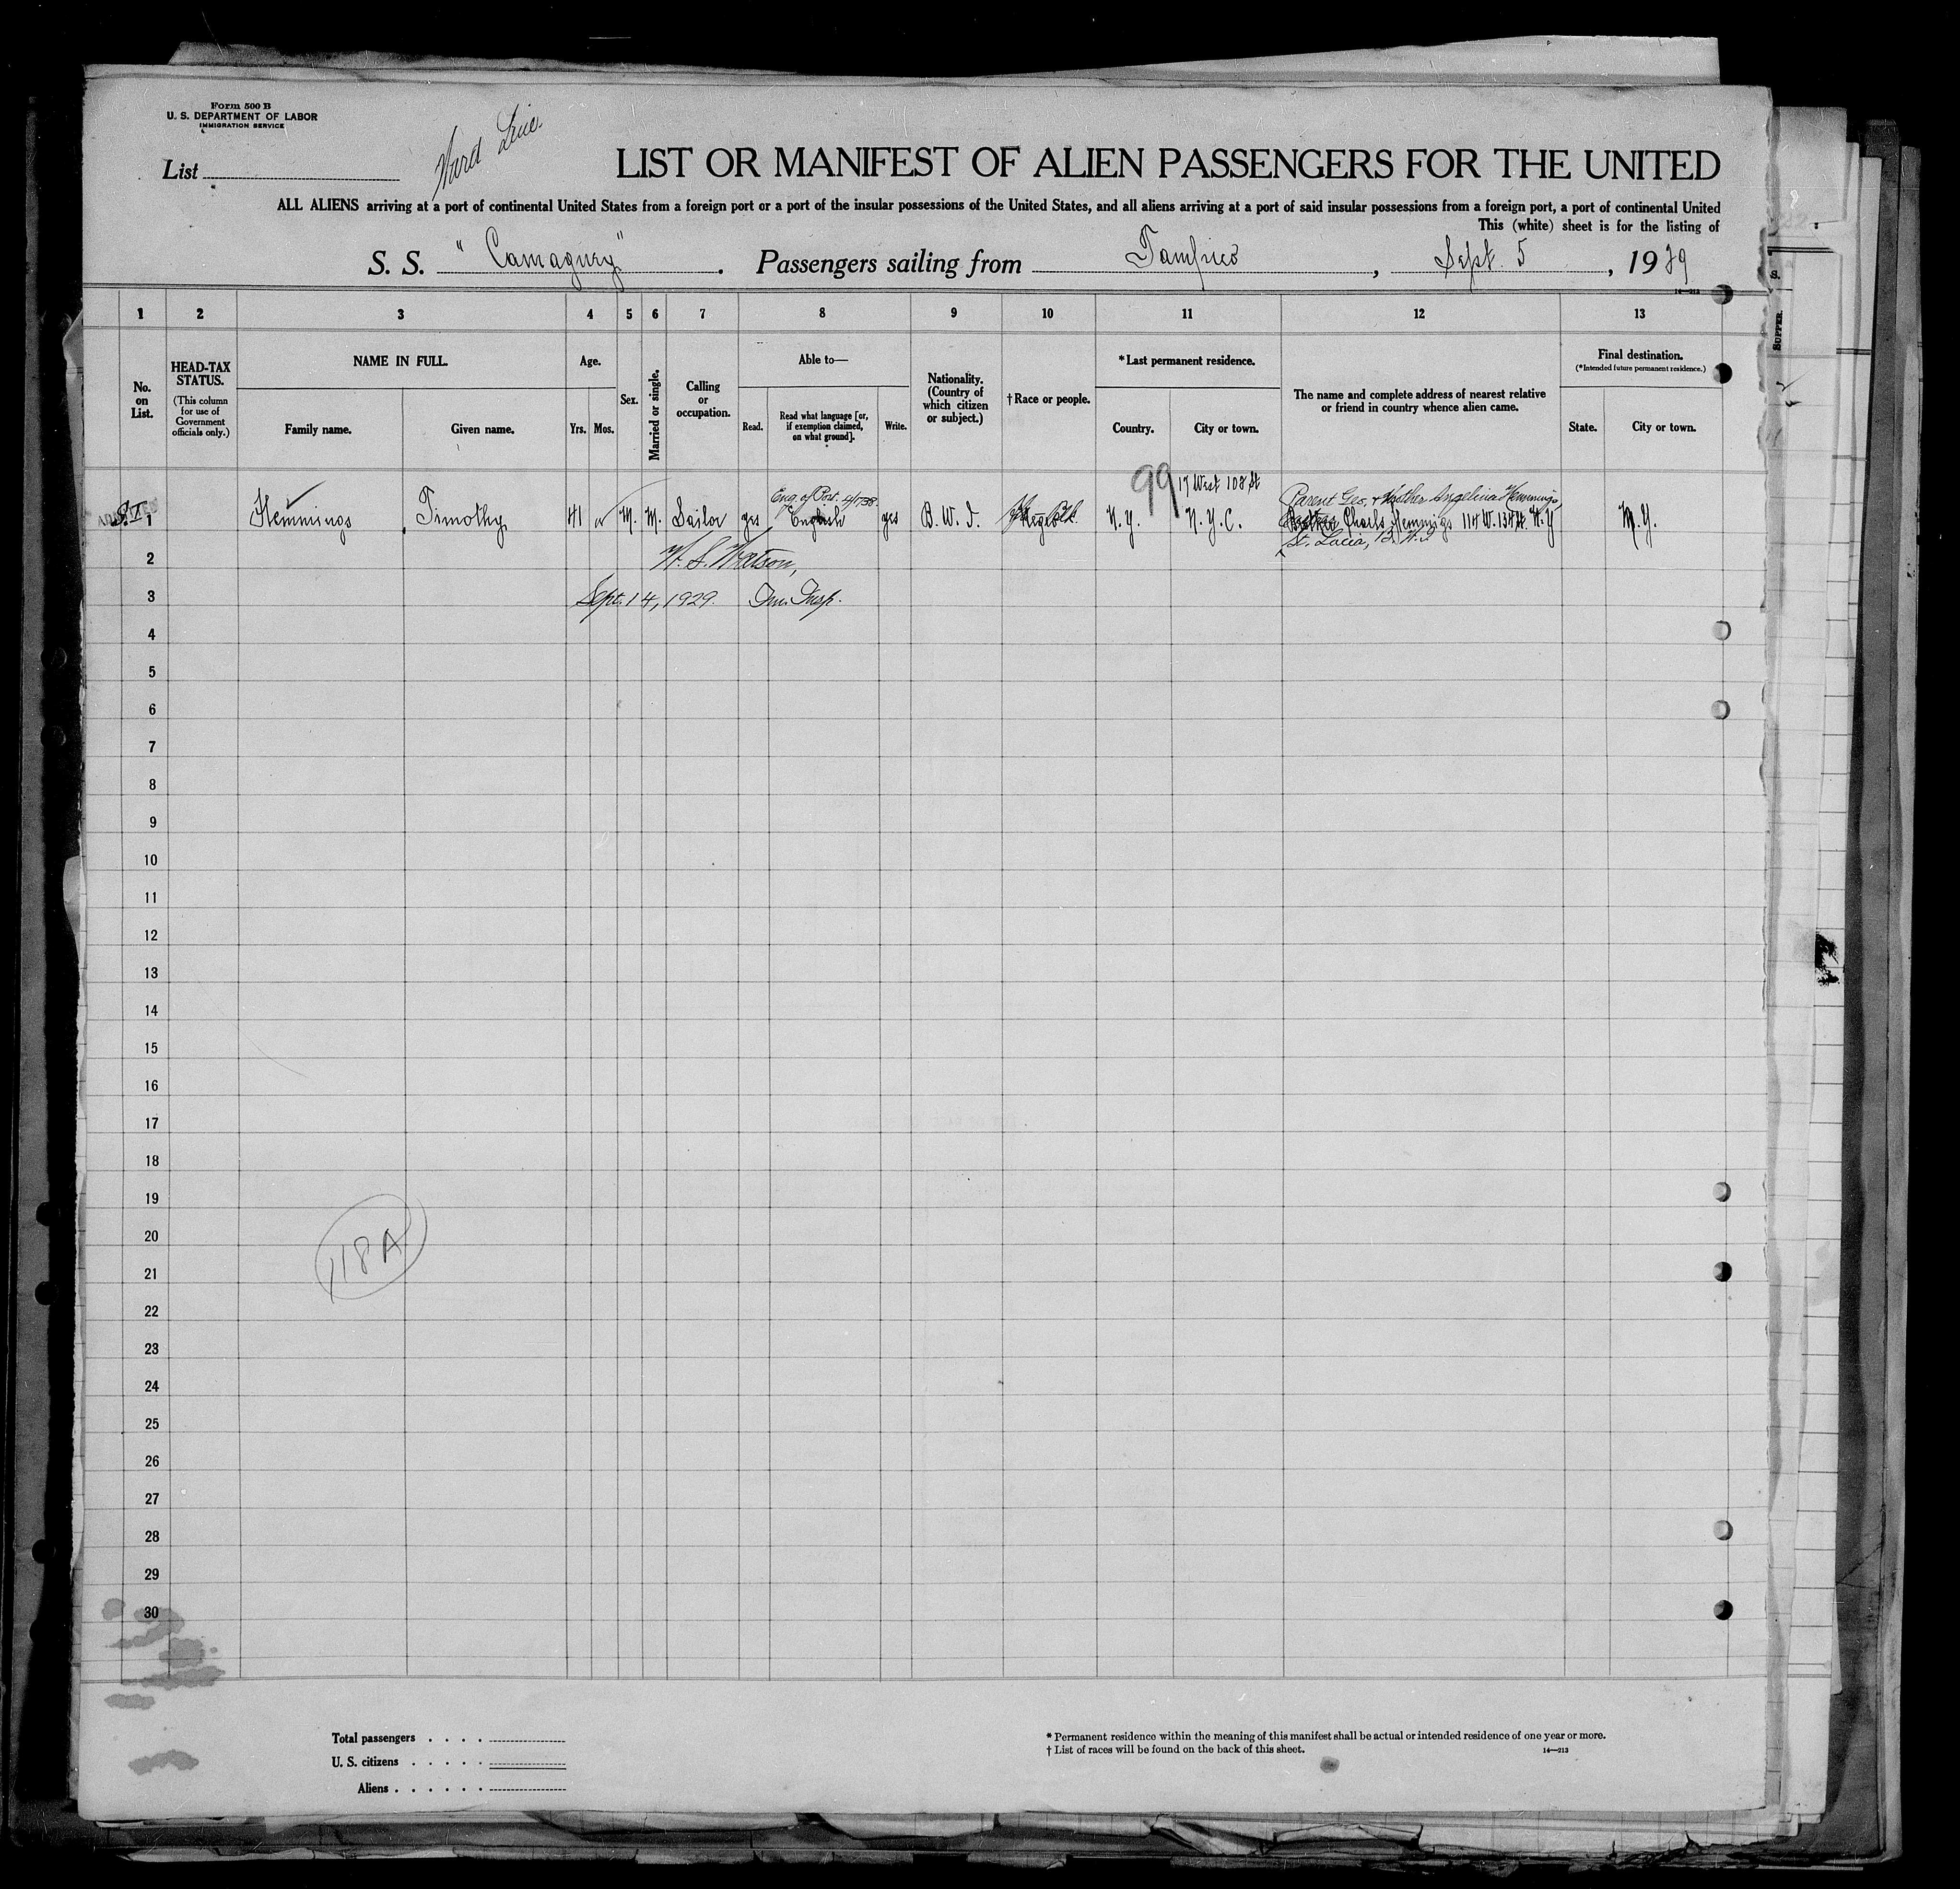 Form 500 B
U. S. DEPARTMENT OF LABOR
IMMIGRATION SERVICE
List
Ward Line
LIST OR MANIFEST OF ALIEN PASSENGERS FOR THE UNITED
ALL ALIENS arriving at a port of continental United States from a foreign port or a port of the insular possessions of the United States, and all aliens arriving at a port of said insular possessions from a foreign port, a port of continental United
This (white) sheet is for the listing of
S. S. "Camaguey". Passengers sailing from Tampico, Sept. 5, 1929
14—213
1 2 3 4 5 6 7 8 9 10 11 12 13
No. on List.
HEAD-TAX STATUS.
(This column for use of Government officials only.)
NAME IN FULL.
Family name.
Given name.
Age.
Yrs. Mos.
Sex.
Married or single.
Calling or occupation.
Able to—
Read.
Read what language [or, if exemption claimed, on what ground].
Write.
Nationality. (Country of which citizen or subject.)
† Race or people.
* Last permanent residence.
Country.
City or town.
The name and complete address of nearest relative or friend in country whence alien came.
Final destination.
(* Intended future permanent residence.)
State.
City or town.
99 17 West 108 St
Parent Geo. & Mother Angelina Hemmings,
1 Hemmings Timothy 41 M. M. Sailor yes English yes B. W. I. Blk. N. Y. N. Y. C. Charls Hemmigs 114 W. 134 St. N. Y N. Y.
St. Lucia, B. W. I
2 W. S. Watson,
3 Sept. 14, 1929. Im. Insp.
4
5
6
7
8
9
10
11
12
13
14
15
16
17
18
19
20
118A
21
22
23
24
25
26
27
28
29
30
Total passengers
U. S. citizens
Aliens
* Permanent residence within the meaning of this manifest shall be actual or intended residence of one year or more.
† List of races will be found on the back of this sheet.
14—213